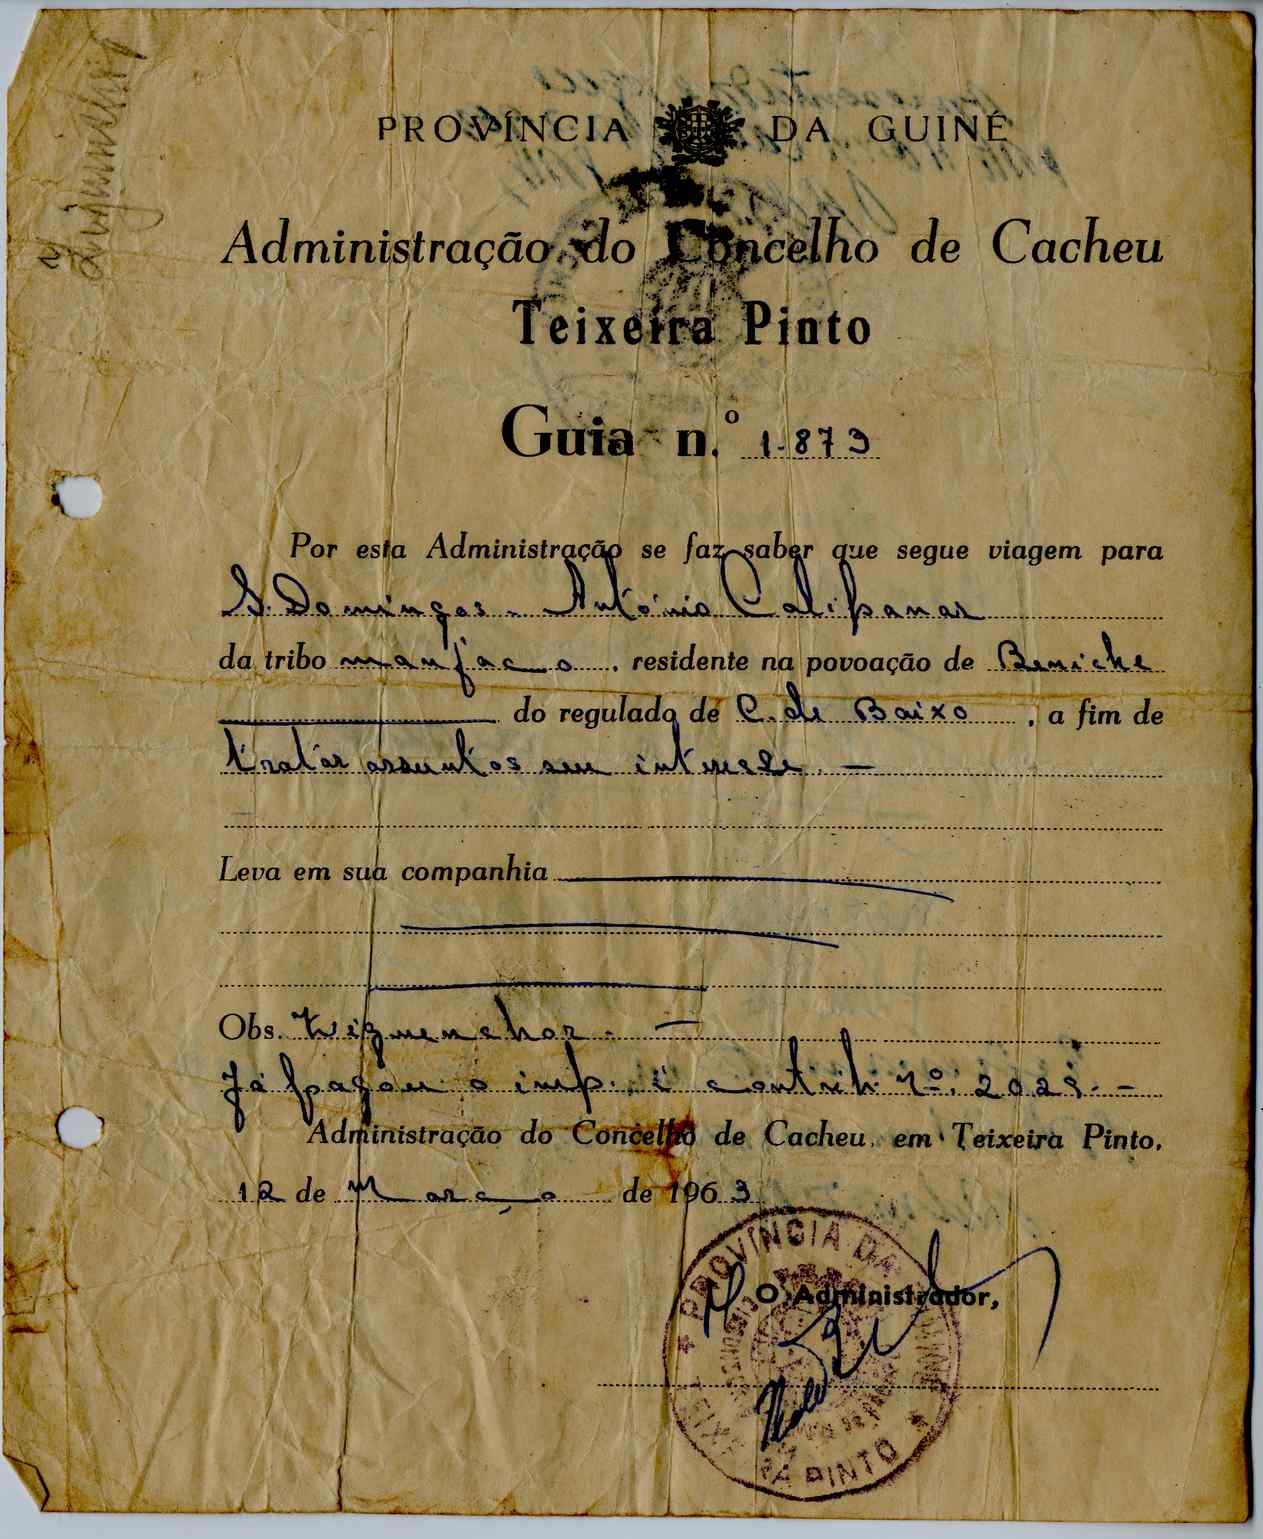 PROVÍNCIA DA GUINÉ
Administração do Concelho de Cacheu
Teixeira Pinto
Guia n.º 1.873
Por esta Administração se faz saber que segue viagem para
S. Domingos - António Calipanar
da tribo manjaco, residente na povoação de Beniche
do regulado de C. de Baixo, a fim de
tratar assuntos seu interesse. —
Leva em sua companhia
Obs. Ziguenchor. —
Já pagou o imp. contrib nº. 2025. —
Administração do Concelho de Cacheu, em Teixeira Pinto,
12 de Março de 1963
O Administrador,
PROVÍNCIA DA
TEIXEIRA PINTO